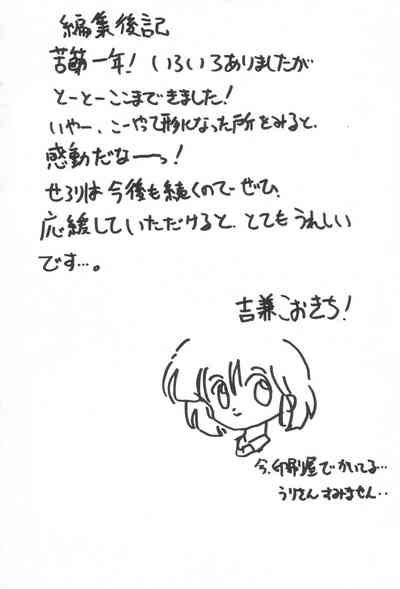 編集後記
苦節一年！いろいろありましたが
とーとーここまできました！
いやー、こーやって形になった所をみると、
感動だなーっ！
せろりは今後も続くのでぜひ、
応援していただけると、とてもうれしい
です…。
吉兼こおきち！
今、印刷屋でかいてる…
うりさんすみません‥